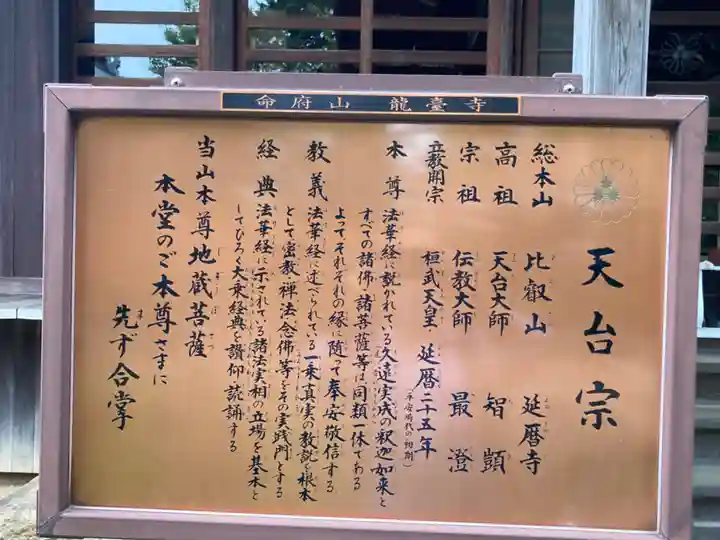 命府山 龍臺寺
天台宗
総本山 比叡山 延暦寺
高祖 天台大師 智顗
宗祖 伝教大師 最澄
立教開宗 桓武天皇 延暦二十五年
(平安時代の初期)
本尊 法華経に説かれている久遠実成の釈迦如来と
すべての諸佛・諸菩薩等は同類一体である
よってそれぞれの縁に随って奉安敬信する
教義 法華経に述べられている一乗真実の教説を根本
として密教禅法念佛等をその実践門とする
経典 法華経に示されている諸法実相の立場を基本と
してひろく大乗経典を讃仰読誦する
当山本尊地蔵菩薩
本堂のご本尊さまに
先ず合掌